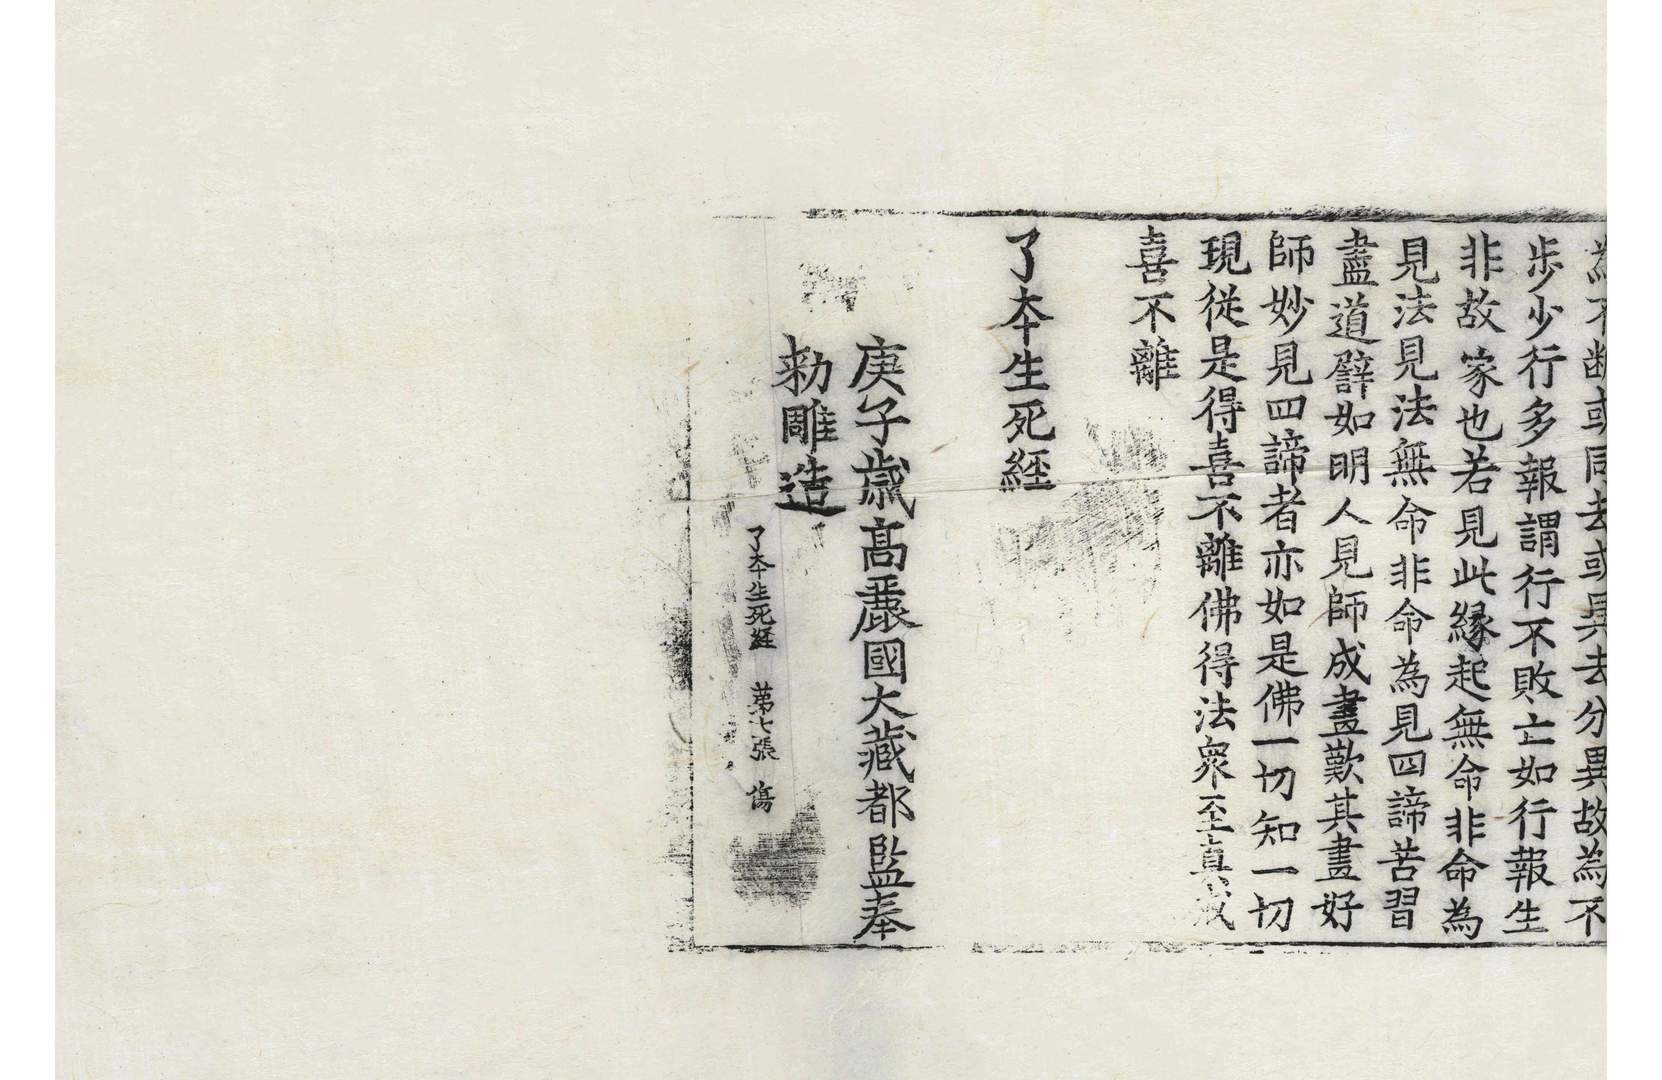 為不断或同去或异去分異故為不
歩少行多報謂行不敗亡如行報生
非故家也若見此縁起無命非命為
見法見法無命非命為見四諦苦習
盡道譬如明人見師成畫歎其畫好
師妙見四諦者亦如是佛一切知一切
現従是得喜不離佛得法衆至真戒
喜不離
了夲生死經
庚子歳高麗國大藏都監奉
勑雕造
了夲生死経 苐七張 傷